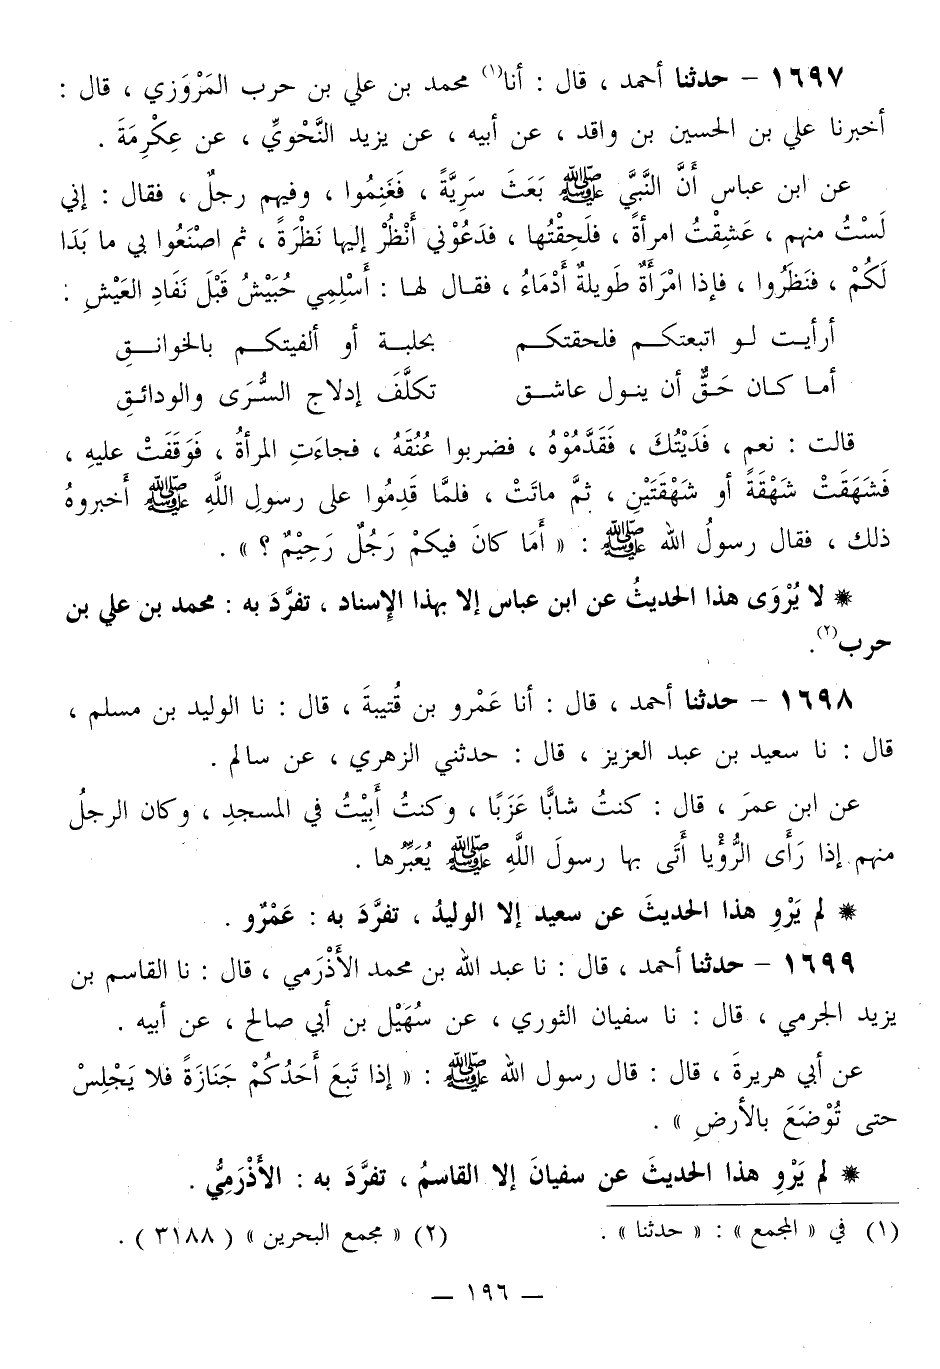 ١٦٩٧ – حدثنا أحمد ، قال : أنا(١) محمد بن علي بن حرب المَرْوَزي ، قال :
أخبرنا علي بن الحسين بن واقد ، عن أبيه ، عن يزيد النَّحْوِيِّ ، عن عِكْرِمَةَ .
عن ابن عباس أَنَّ النَّبِيَّ ﷺ بَعَثَ سَرِيَّةً ، فَغَنِمُوا ، وفيهم رجلٌ ، فقال : إني
لَسْتُ منهم ، عَشِقْتُ امرأةً ، فلَحِقْتُها ، فدَعُوْني أَنْظُرْ إليها نَظْرَةً ، ثم اصْنَعُوا بي ما بَدَا
لَكُمْ ، فنَظَرُوا ، فإذا امْرَأَةٌ طَويلةٌ أَدْمَاءُ ، فقال لها : أَسْلِمِي حُبَيْشُ قَبْلَ نَفَادِ العَيْشِ :
أرأيت لو اتبعتكم فلحقتكم بحلبة أو ألفيتكم بالخوانقِ
أما كان حَقٌّ أن ينول عاشق تكلَّفَ إدلاج السُّرَى والودائقِ
قالت : نعم ، فَدَيْتُكَ ، فَقَدَّمُوْهُ ، فضربوا عُنُقَهُ ، فجاءَتِ المرأةُ ، فَوَقَفَتْ عليهِ ،
فَشَهَقَتْ شَهْقَةً أو شَهْقَتَيْنِ ، ثمَّ ماتَتْ ، فلمَّا قَدِمُوا على رسولِ اللَّهِ ﷺ أَخبروهُ
ذلك ، فقال رسولُ الله ﷺ : « أَمَا كانَ فيكمْ رَجُلٌ رَحِيْمٌ ؟ » .
* لا يُرْوَى هذا الحديثُ عن ابن عباس إلا بهذا الإسناد ، تفرَّدَ به : محمد بن علي بن
حرب(٢).
١٦٩٨ – حدثنا أحمد ، قال : أنا عَمْرو بن قُتيبةَ ، قال : نا الوليد بن مسلم ،
قال : نا سعيد بن عبد العزيز ، قال : حدثني الزهري ، عن سالم .
عن ابن عمرَ ، قال : كنتُ شابًّا عَزَبًا ، وكنتُ أَبِيْتُ في المسجدِ ، وكان الرجلُ
منهم إذا رَأَى الرُّؤْيا أَتَى بها رسولَ اللَّهِ ﷺ يُعَبِّرُها .
* لم يَرْوِ هذا الحديثَ عن سعيد إلا الوليدُ ، تفرَّدَ به : عَمْرٌو .
١٦٩٩ – حدثنا أحمد ، قال : نا عبد الله بن محمد الأَذْرَمي ، قال : نا القاسم بن
يزيد الجرمي ، قال : نا سفيان الثوري ، عن سُهَيْل بن أبي صالح ، عن أبيه .
عن أبي هريرةَ ، قال : قال رسول الله ﷺ : « إذا تَبِعَ أَحَدُكُمْ جَنَازَةً فلا يَجْلِسْ
حتى تُوْضَعَ بالأَرضِ » .
* لم يَرْوِ هذا الحديثَ عن سفيانَ إلا القاسمُ ، تفرَّدَ به : الأَذْرَمِيُّ .
(١) في « المجمع » : « حدثنا » . (٢) « مجمع البحرين » ( ٣١٨٨ ) .
— ١٩٦ —